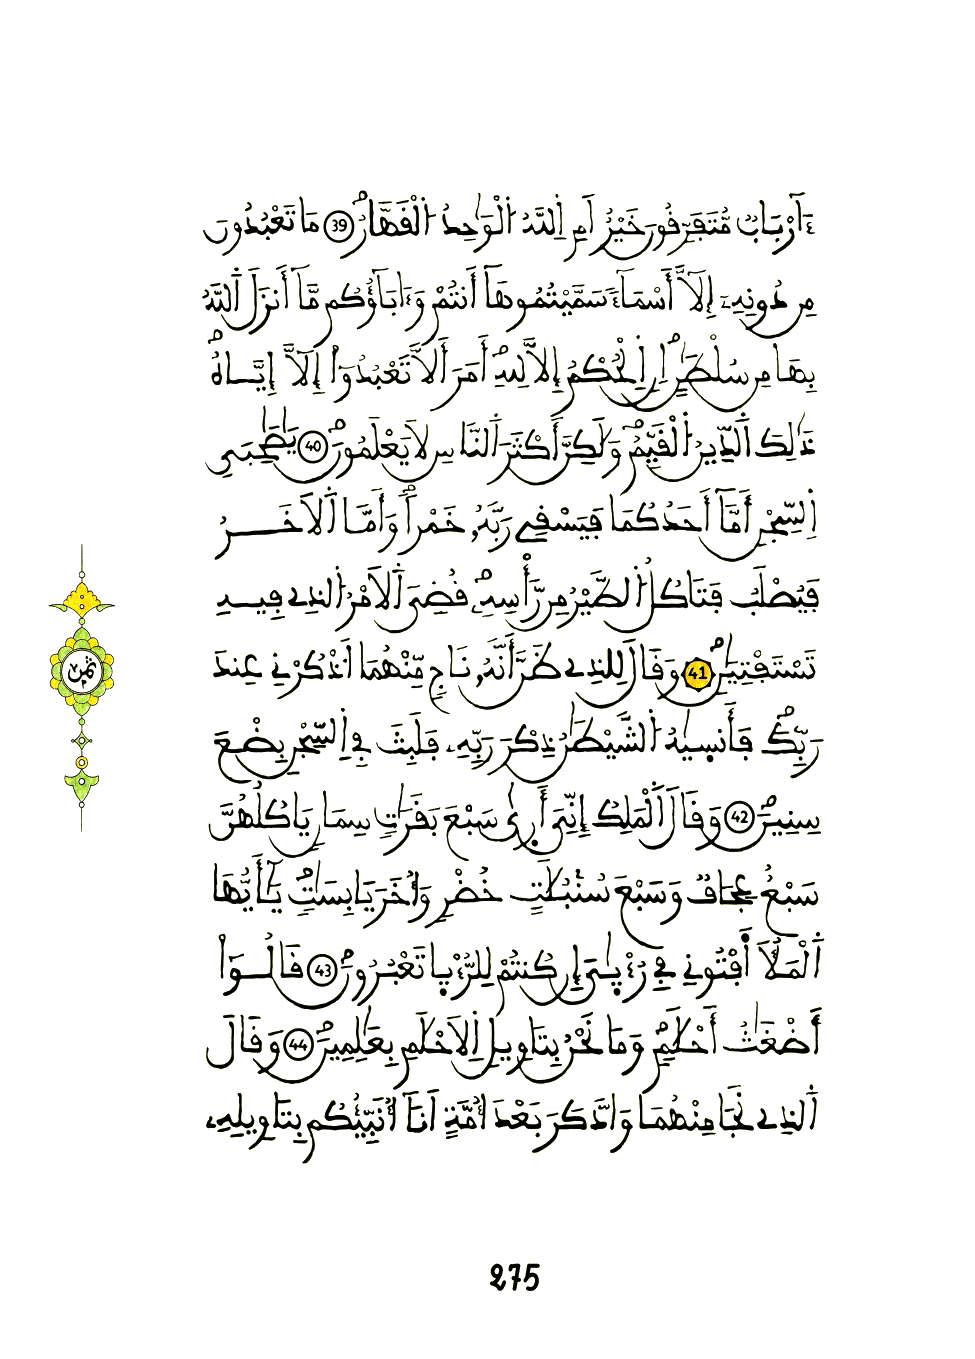 ءَآرْبَابٌ مُّتَفَرِّقُونَ خَيْرٌ اَمِ اِ۬للَّهُ اُ۬لْوَٰحِدُ اُ۬لْقَهَّارُۖ 39 مَا تَعْبُدُونَ
مِن دُونِهِۦٓ إِلَّآ أَسْمَآءٗ سَمَّيْتُمُوهَآ أَنتُمْ وَءَابَآؤُكُم مَّآ أَنزَلَ اَ۬للَّهُ
بِهَا مِن سُلْطَٰنٍۖ اِنِ اِ۬لْحُكْمُ إِلَّا لِلهِۖ أَمَرَ أَلَّا تَعْبُدُوٓاْ إِلَّآ إِيَّاهُۖ
ذَٰلِكَ اَ۬لدِّينُ اُ۬لْقَيِّمُۖ وَلَٰكِنَّ أَكْثَرَ اَ۬لنَّاسِ لَا يَعْلَمُونَۖ 40 يَٰصَٰحِبَيِ
اِ۬لسِّجْنِ أَمَّآ أَحَدُكُمَا فَيَسْقِے رَبَّهُۥ خَمْراٗۖ وَأَمَّا اَ۬لَاخَرُ
فَيُصْلَبُ فَتَاكُلُ اُ۬لطَّيْرُ مِن رَّأْسِهِۦۖ قُضِيَ اَ۬لَامْرُ اُ۬لذِے فِيهِ
تَسْتَفْتِيَٰنِۖ 41 وَقَالَ لِلذِے ظَنَّ أَنَّهُۥ نَاجٖ مِّنْهُمَا اَ۟ذْكُرْنِے عِندَ
رَبِّكَۖ فَأَنسَيٰهُ اُ۬لشَّيْطَٰنُ ذِكْرَ رَبِّهِۦ فَلَبِثَ فِے اِ۬لسِّجْنِ بِضْعَ
سِنِينَۖ 42 وَقَالَ اَ۬لْمَلِكُ إِنِّيَ أَر۪يٰ سَبْعَ بَقَرَٰتٖ سِمَانٖ يَاكُلُهُنَّ
سَبْعٌ عِجَافٞ وَسَبْعَ سُنۢبُلَٰتٍ خُضْرٖ وَأُخَرَ يَابِسَٰتٖۖ يَٰٓأَيُّهَا
اَ۬لْمَلَأُ اَ۬فْتُونِے فِے رُءْيٰ۪يَ إِن كُنتُمْ لِلرُّءْي۪ا تَعْبُرُونَۖ 43 قَالُوٓاْ
أَضْغَٰثُ أَحْلَٰمٖۖ وَمَا نَحْنُ بِتَاوِيلِ اِ۬لَاحْلَٰمِ بِعَٰلِمِينَۖ 44 وَقَالَ
اَ۬لذِے نَجَا مِنْهُمَا وَادَّكَرَ بَعْدَ أُمَّةٍ اَنَآ أُنَبِّئُكُم بِتَاوِيلِهِۦ
ثمن
275